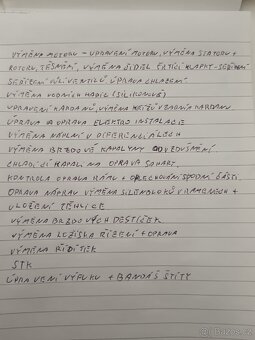 VÝMĚNA MOTORU - UPRAVENÍ MOTORU, VÝMĚNA STATORU +
ROTORU, TĚSNĚNÍ, VÝMĚNA SÍDEL ŠKTÍCÍ KLAPKY - SEŘÍZENÍ
SEŘÍZENÍ VŮLÍ VENTILŮ ÚPRAVA CHLAZENÍ
VÝMĚNA VODNÍCH HADIC (SILIKONOVÉ)
UPRAVENÍ KARDANŮ, VÝMĚNA KŘÍŽŮ V ZADNÍM KARDANU
ÚPRAVA A OPRAVA ELEKTRO INSTALACE
VÝMĚNA NÁPLNÍ V DIFERENCIÁLECH
VÝMĚNA BRZDOVÉ KAPALINY ODVZDUŠNĚNÍ
CHLADÍCÍ KAPAL NA OPRAVA
KONTROLA OPRAVA RÁMU + SPODNÍ ČÁSTI
OPRAVA NÁPRAV VÝMĚNA SILENBLOKŮ V RAMENECH +
ULOŽENÍ TĚHLICE
VÝMĚNA BRZDOVÝCH DESTIČEK
VÝMĚNA LOŽISKA ŘÍZENÍ + OPRAVA
VÝMĚNA ŘÍDÍTEK
STK
ÚPRAVENÍ VÝFUKU + BANDÁŽ ŠTÍTY
Sbazos.cz